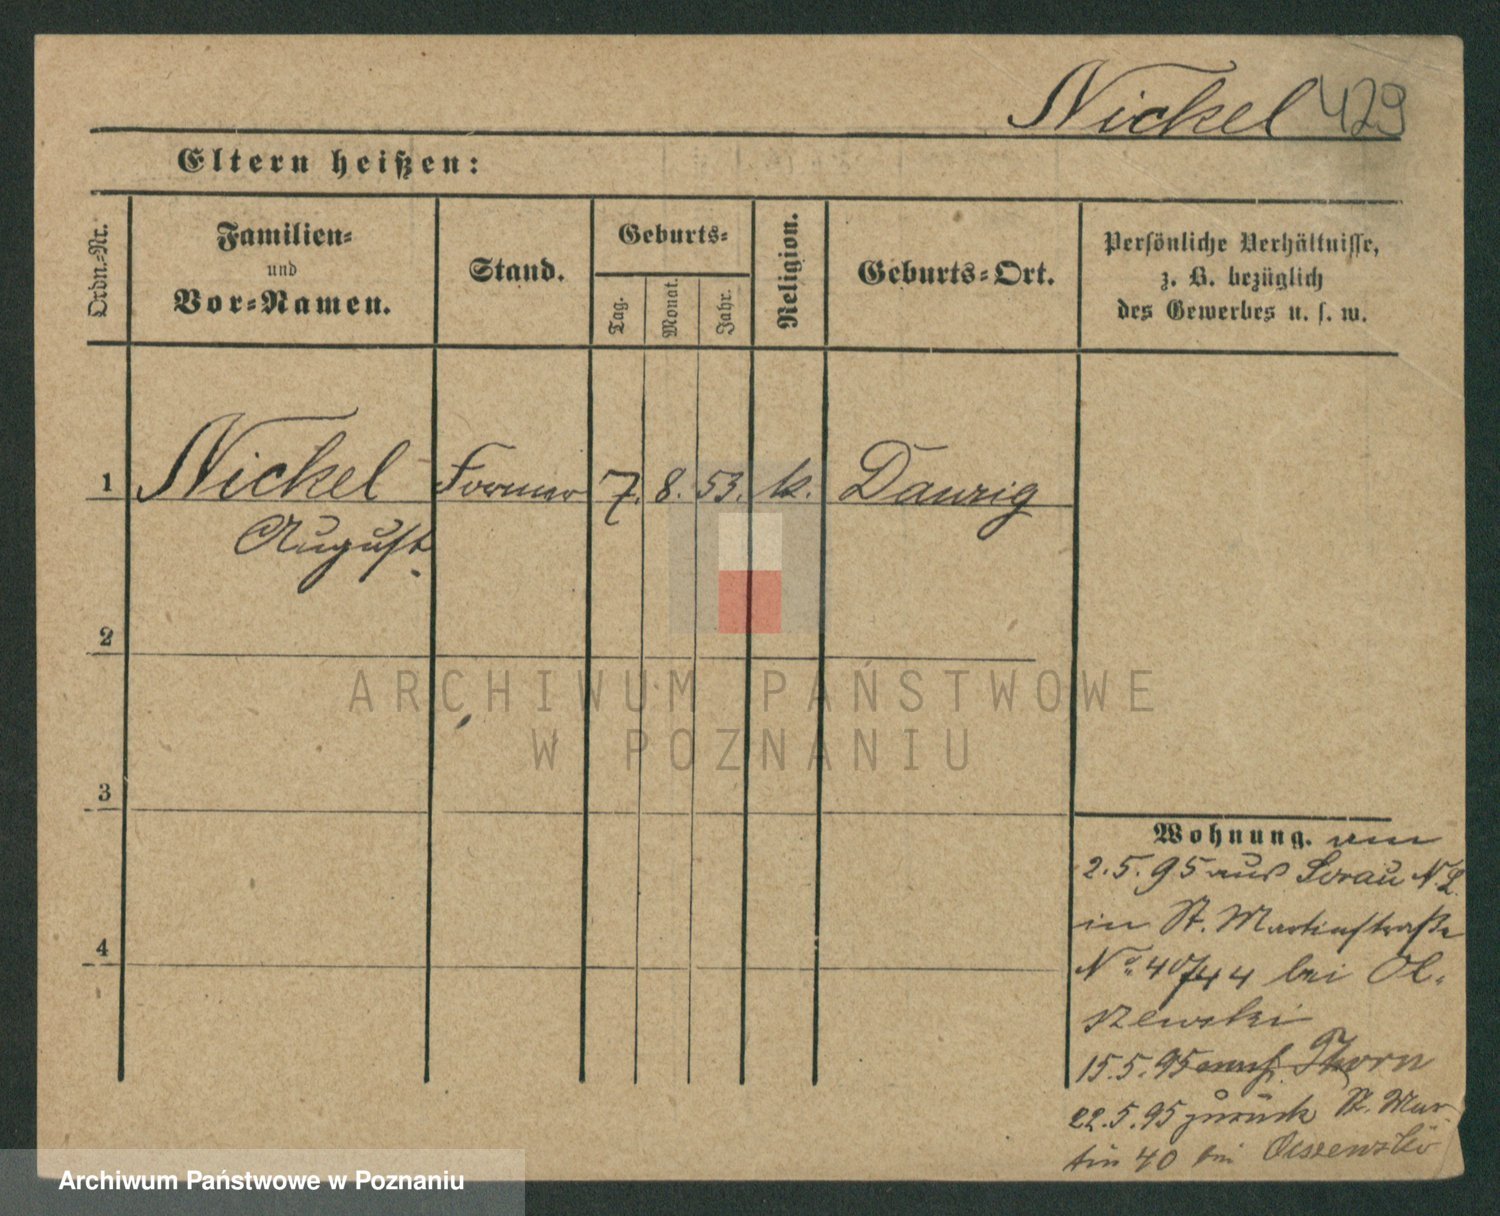 Nickel 429
Eltern heißen:
Ordn.-Nr.
Familien-
und
Vor-Namen.
Stand.
Geburts-
Tag.
Monat.
Jahr.
Religion.
Geburts-Ort.
Persönliche Verhältnisse,
z. B. bezüglich
des Gewerbes u. s. w.
1 Nickel Former 7. 8. 53. k. Danzig
August
2
3
4
Wohnung. am
2.5.95 aus Sorau N.L.
in St. Martinstraße
No. 40/44 bei Ol-
szewski
15.5.95 nach Thorn
22.5.95 zurück St. Mar-
tin 40 bei
ARCHIWUM PAŃSTWOWE
W POZNANIU
Archiwum Państwowe w Poznaniu